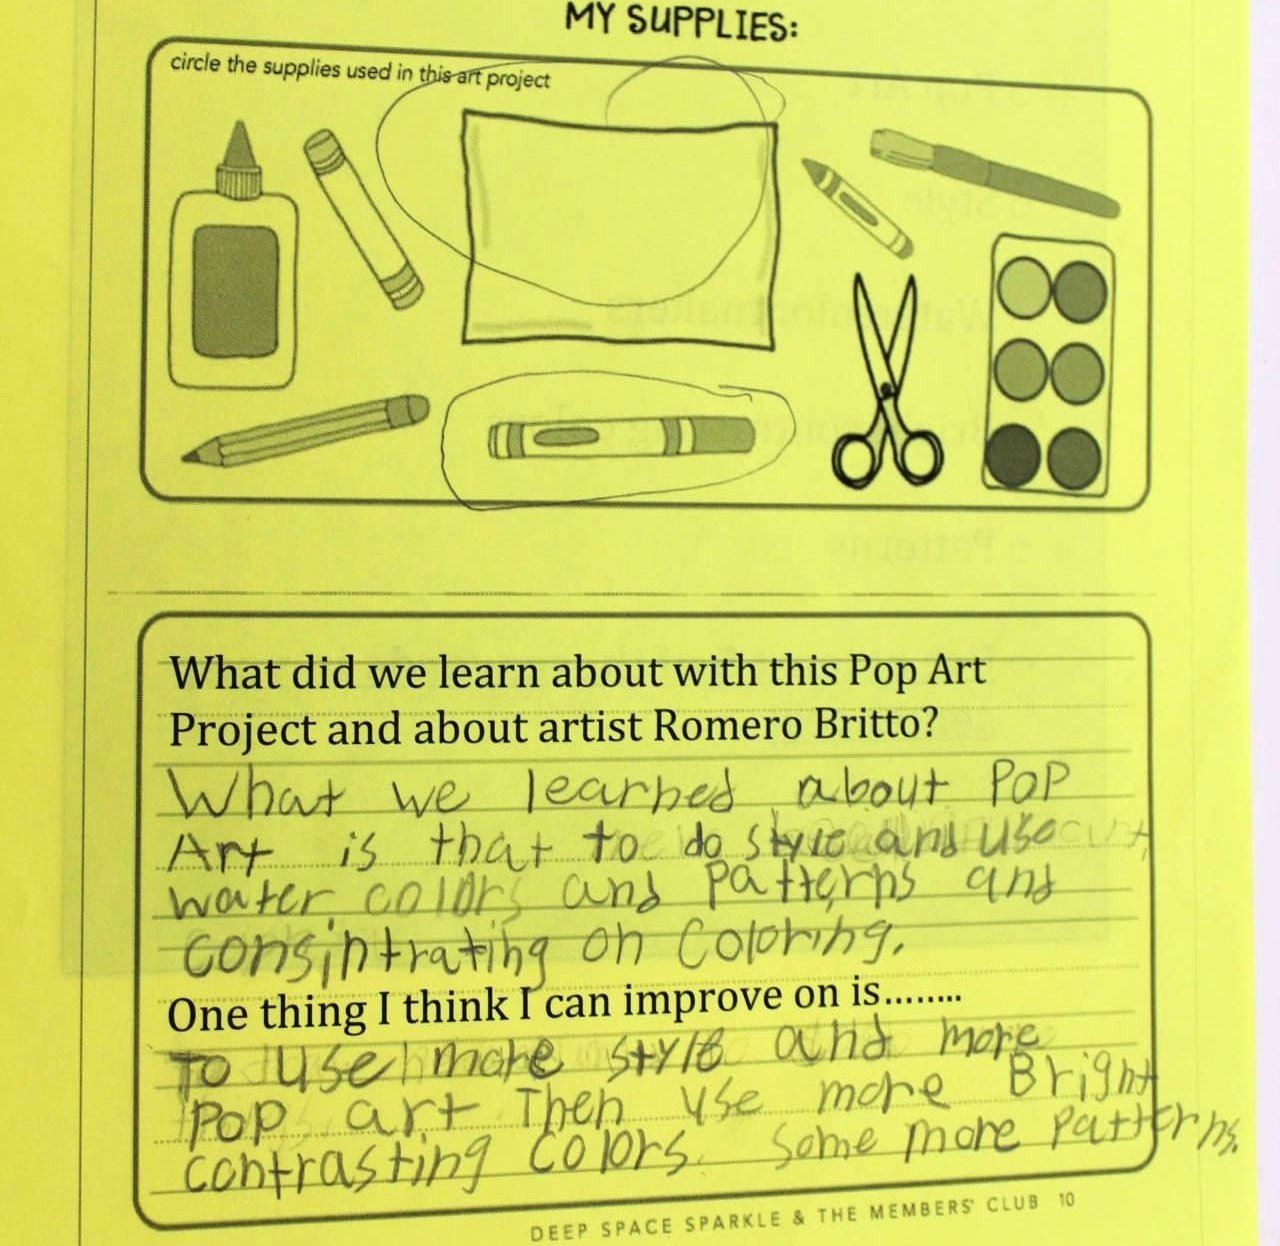 MY SUPPLIES:
circle the supplies used in this art project
What did we learn about with this Pop Art
Project and about artist Romero Britto?
What we learned about POP
Art is that to do style and use
water colors and Patterns and
consintrating on Coloring.
One thing I think I can improve on is........
To use more style and more
POP art Then use more Bright
contrasting Colors. Some more Patterns.
DEEP SPACE SPARKLE & THE MEMBERS' CLUB 10